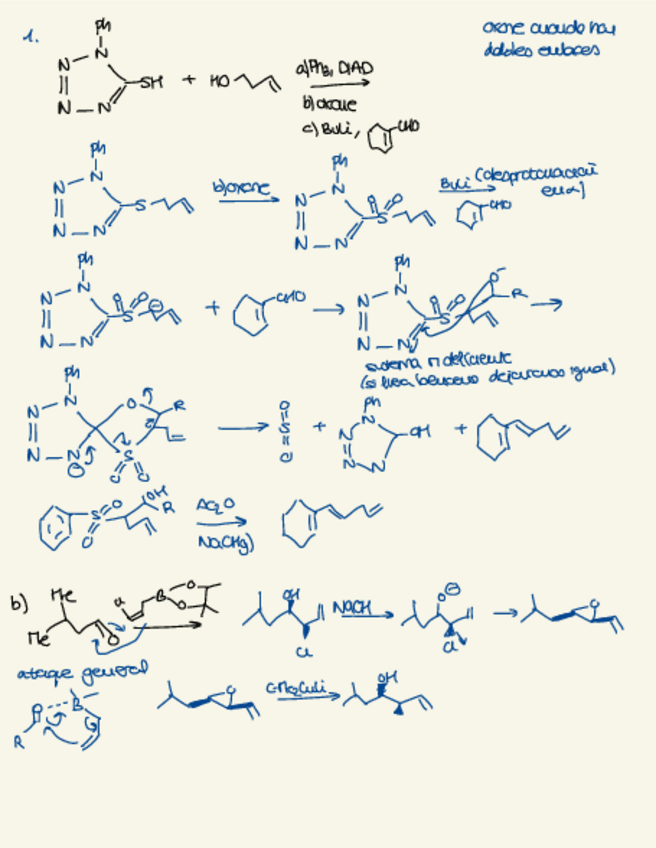 1.
oxone cuando hay
dobles enlaces
Ph
N N
N N SH + HO
a) Ph3, DIAD
b) oxone
c) BuLi, CHO
Ph
N N
N N S
b) oxone
Ph
N N
N N S O O
BuLi (desprotonación
en α)
CHO
Ph
N N
N N S O O ⊖ + CHO
Ph
N N
N N S O O O⁻ R
sistema π deficiente
(si fuera benceno dejaríamos igual)
Ph
N N
N N ⊖ O R S O O
O
S
O
+
Ph
N N
N N OH
+
S O O OH R
Ac2O
Na(Hg)
b) Me
Me O
Cl B O O
OH
Cl
NaOH
O ⊖
Cl
O
ataque general
O B
R
O
C-Me2CuLi
OH